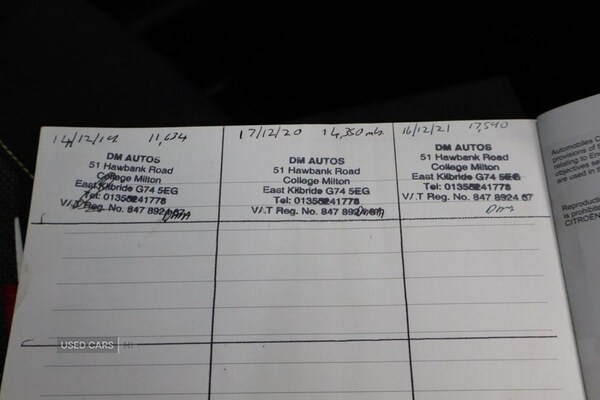 14/12/19 11,634
DM AUTOS
51 Hawbank Road
College Milton
East Kilbride G74 5EG
Tel: 01355241778
V.A.T Reg. No. 847 8924 67
17/12/20 14,350 mls
DM AUTOS
51 Hawbank Road
College Milton
East Kilbride G74 5EG
Tel: 01355241778
V.A.T Reg. No. 847 8924 67
16/12/21 17,590
DM AUTOS
51 Hawbank Road
College Milton
East Kilbride G74 5EG
Tel: 01355241778
V.A.T Reg. No. 847 8924 67
Automobiles C
provisions of
relating to En
objectives se
are used in t
Reproductio
is prohibite
CITROËN
USED CARS NI